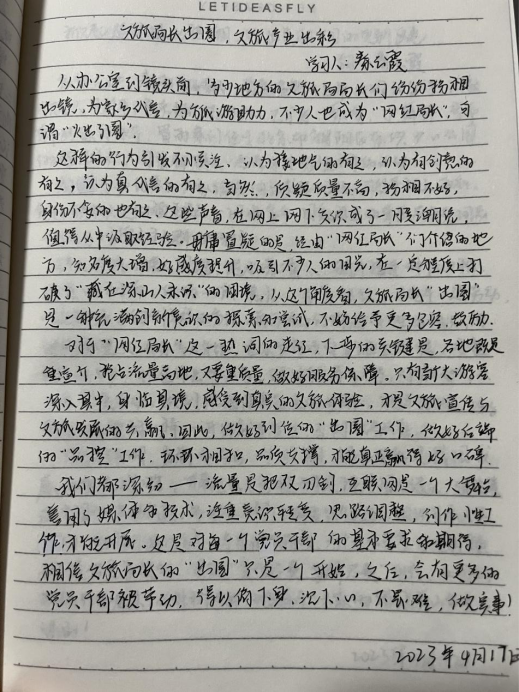 LETIDEASFLY
文旅局长出圈，文旅产业出彩
学习人：秦公霞
从办公室到镜头前，当多地方的文旅局局长们纷纷扮相
出镜，为家乡代言，为旅游助力，不少人也成为“网红局长”，可
谓“火出了圈”。
这样的行为引发不小关注、认为接地气的有之，认为有创意的
有之，认为真代言的有之，当然，质疑质量不高，扮相不好，
身份不妥的也有之，这些声音，在网上网下交织成了一股潮流，
值得从中汲取经验。毋庸置疑的是，经由“网红局长”们介绍的地
方，知名度大增，好感度提升，吸引不少人的目光，在一定程度上打
破了“藏在深山人未识”的困境，从这个角度看，文旅局长“出圈”
是一种充满创新意识的探索和尝试，不妨给予更多包容、鼓励。
对于“网红局长”这一热词的走红，下一步的关键是，各地既是
重宣介，抢占流量高地，又要重质量，做好服务保障。只有让广大游客
深入其中，身临其境，感受到真实的文旅体验，才是文旅宣传与
文旅发展的共赢。因此，做好到位的“出圈”工作，做好后端
的“品控”工作，环环相扣，品质支撑，才能真正赢得好口碑。
我们都深知——流量是把双刃剑，互联网是一个大舞台，
善用新媒体和技术，注重意识转变，思路调整，创作性工
作才能开展。这是对每一个党员干部的基本要求和期待，
相信文旅局长的“出圈”只是一个开始，之后，会有更多的
党员干部被带动，得以俯下身、沉下心，不畏难，做实事！
2023年4月17日